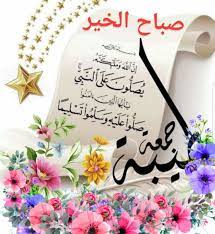 صباح الخير
إن الله وملئكته
يصلون على النبي
يأيها الذين ءامنوا
صلوا عليه وسلموا تسليما
جمعة
طيبة